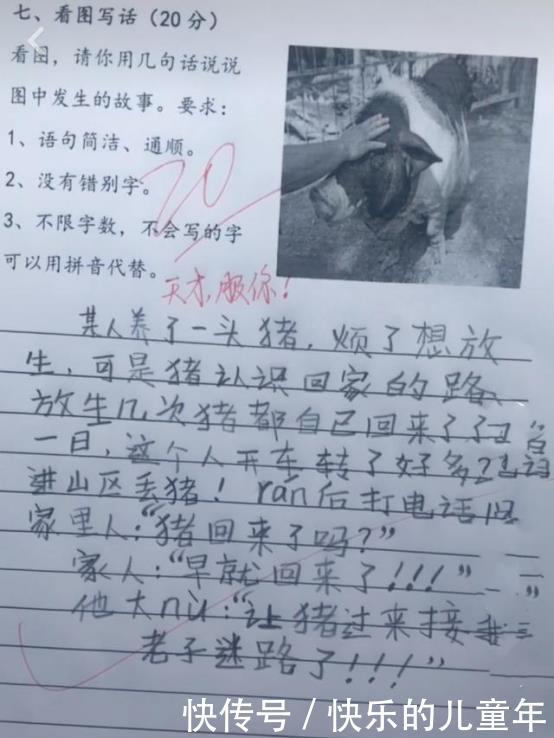 七、看图写话（20分）
看图，请你用几句话说说
图中发生的故事。要求：
1、语句简洁、通顺。
2、没有错别字。
3、不限字数，不会写的字
可以用拼音代替。
20
天才，服你！
某人养了一头猪，烦了想放
生，可是猪认识回家的路，
放生几次猪都自己回来了了
一日，这个人开车转了好多
进山区丢猪！rán后打电话
家里人：“猪回来了吗？”
家人：“早就回来了!!!”
他大nù：“让猪过来接我
老子迷路了!!!”
快传号 / 快乐的儿童年